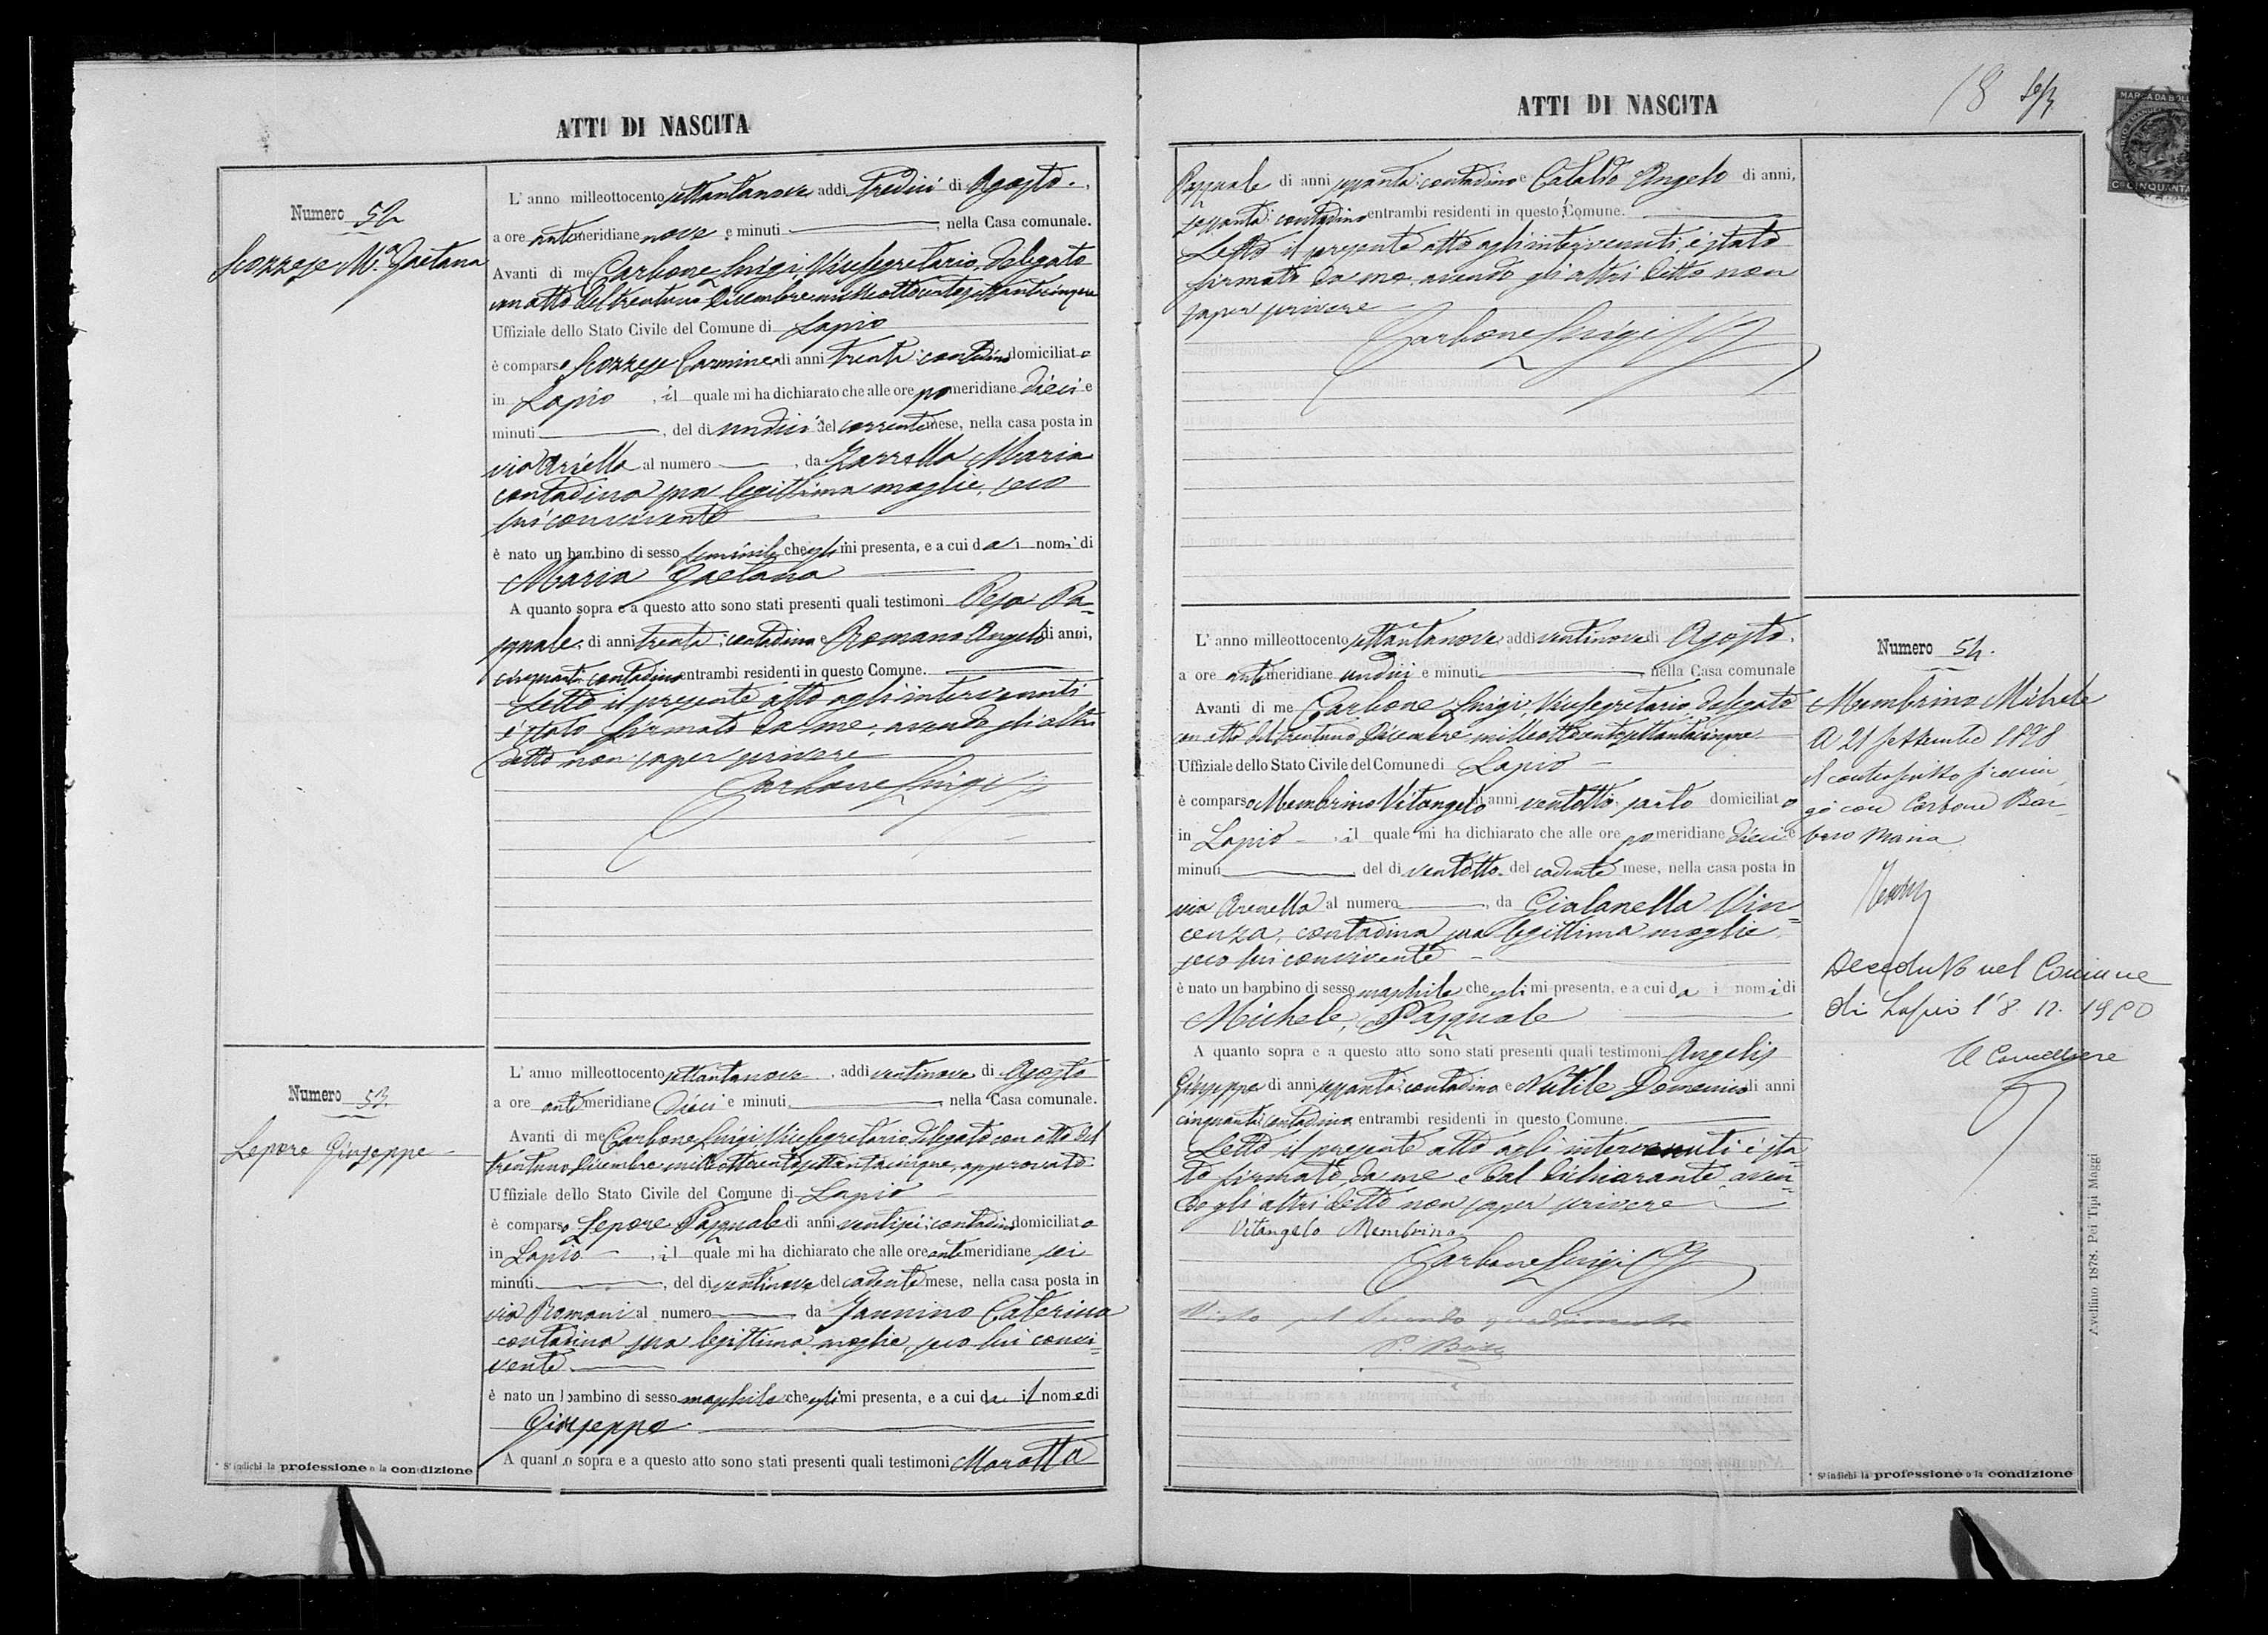 ATTI DI NASCITA
Numero 52
Scozzese Mª Gaetana
L' anno milleottocento settantanove addi tredici di Agosto,
a ore antimeridiane nove e minuti , nella Casa comunale.
Avanti di me Carbone Luigi, Vicesegretario, delegato
con atto del trentuno Dicembre milleottocentosettantacinque
Uffiziale dello Stato Civile del Comune di Lapio
è comparso Scozzese Carmine di anni trenta contadino domiciliato
in Lapio , il quale mi ha dichiarato che alle ore pomeridiane dieci e
minuti , del di undici del corrente mese, nella casa posta in
via Ariella al numero , da Zarrella Maria
contadina sua legittima moglie, seco
lui convivente
è nato un bambino di sesso feminile che egli mi presenta, e a cui da i nomi di
Maria Gaetana
A quanto sopra e a questo atto sono stati presenti quali testimoni Pepa Pa=
squale di anni trenta contadino e Romano Angelo di anni,
cinquanta contadino entrambi residenti in questo Comune.
Letto il presente atto agli intervenuti
è stato firmato da me, avendo gli altri
detto non saper scrivere
Carbone Luigi
Numero 53
Lepore Giuseppe
L' anno milleottocento settantanove , addi ventinove di Agosto
a ore antimeridiane dieci e minuti , nella Casa comunale.
Avanti di me Carbone Luigi Vicesegretario delegato con atto del
trentuno Dicembre milleottocentosettantacinque, approvato
Uffiziale dello Stato Civile del Comune di Lapio
è comparso Lepore Pasquale di anni ventisei contadino domiciliato
in Lapio , il quale mi ha dichiarato che alle ore antimeridiane sei
minuti , del di ventinove del cadente mese, nella casa posta in
via Romani al numero da Jannino Caterina
contadina sua legittima moglie, seco lui convi=
vente
è nato un bambino di sesso maschile che egli mi presenta, e a cui da il nome di
Giuseppe
A quanto sopra e a questo atto sono stati presenti quali testimoni Marotta
* S'indichi la professione o la condizione
ATTI DI NASCITA
18
MARCA DA BOLL
CINQUANTA
Pasquale di anni sessanta contadino e Cataldo Angelo di anni,
sessanta contadino entrambi residenti in questo Comune.
Letto il presente atto agli intervenuti è stato
firmato da me avendo gli altri detto non
saper scrivere
Carbone Luigi
Numero 54.
Membrino Michele
L' anno milleottocento settantanove addi ventinove di Agosto,
a ore antimeridiane undici e minuti , nella Casa comunale
Avanti di me Carbone Luigi, Vicesegretario delegato
con atto del trentuno Dicembre milleottocentosettantacinque
Uffiziale dello Stato Civile del Comune di Lapio
è comparso Membrino Vitangelo di anni ventotto sarto domiciliato
in Lapio , il quale mi ha dichiarato che alle ore pomeridiane dieci e
minuti , del di ventotto del cadente mese, nella casa posta in
via Arenella al numero , da Gialanella Vin=
cenza, contadina sua legittima moglie,
seco lui convivente
è nato un bambino di sesso maschile che egli mi presenta, e a cui da i nomi di
Michele, Pasquale
A quanto sopra e a questo atto sono stati presenti quali testimoni Angelis
Giuseppe di anni sessanta contadino e Nutile Domenico di anni
cinquanta contadino entrambi residenti in questo Comune.
Letto il presente atto agli intervenuti è sta=
to firmato da me e dal dichiarante aven=
do gli altri detto non saper scrivere
Vitangelo Membrino
Carbone Luigi
Visto pel secondo quadrimestre
A 21 settembre 1898
il controscritto si coniu
gò con Carbone Bar=
bara Maria
Deceduto nel Comune
di Lapio l'8. 12. 1900
Il Cancelliere
* S'indichi la professione o la condizione
Avellino 1878. Pei Tipi Maggi